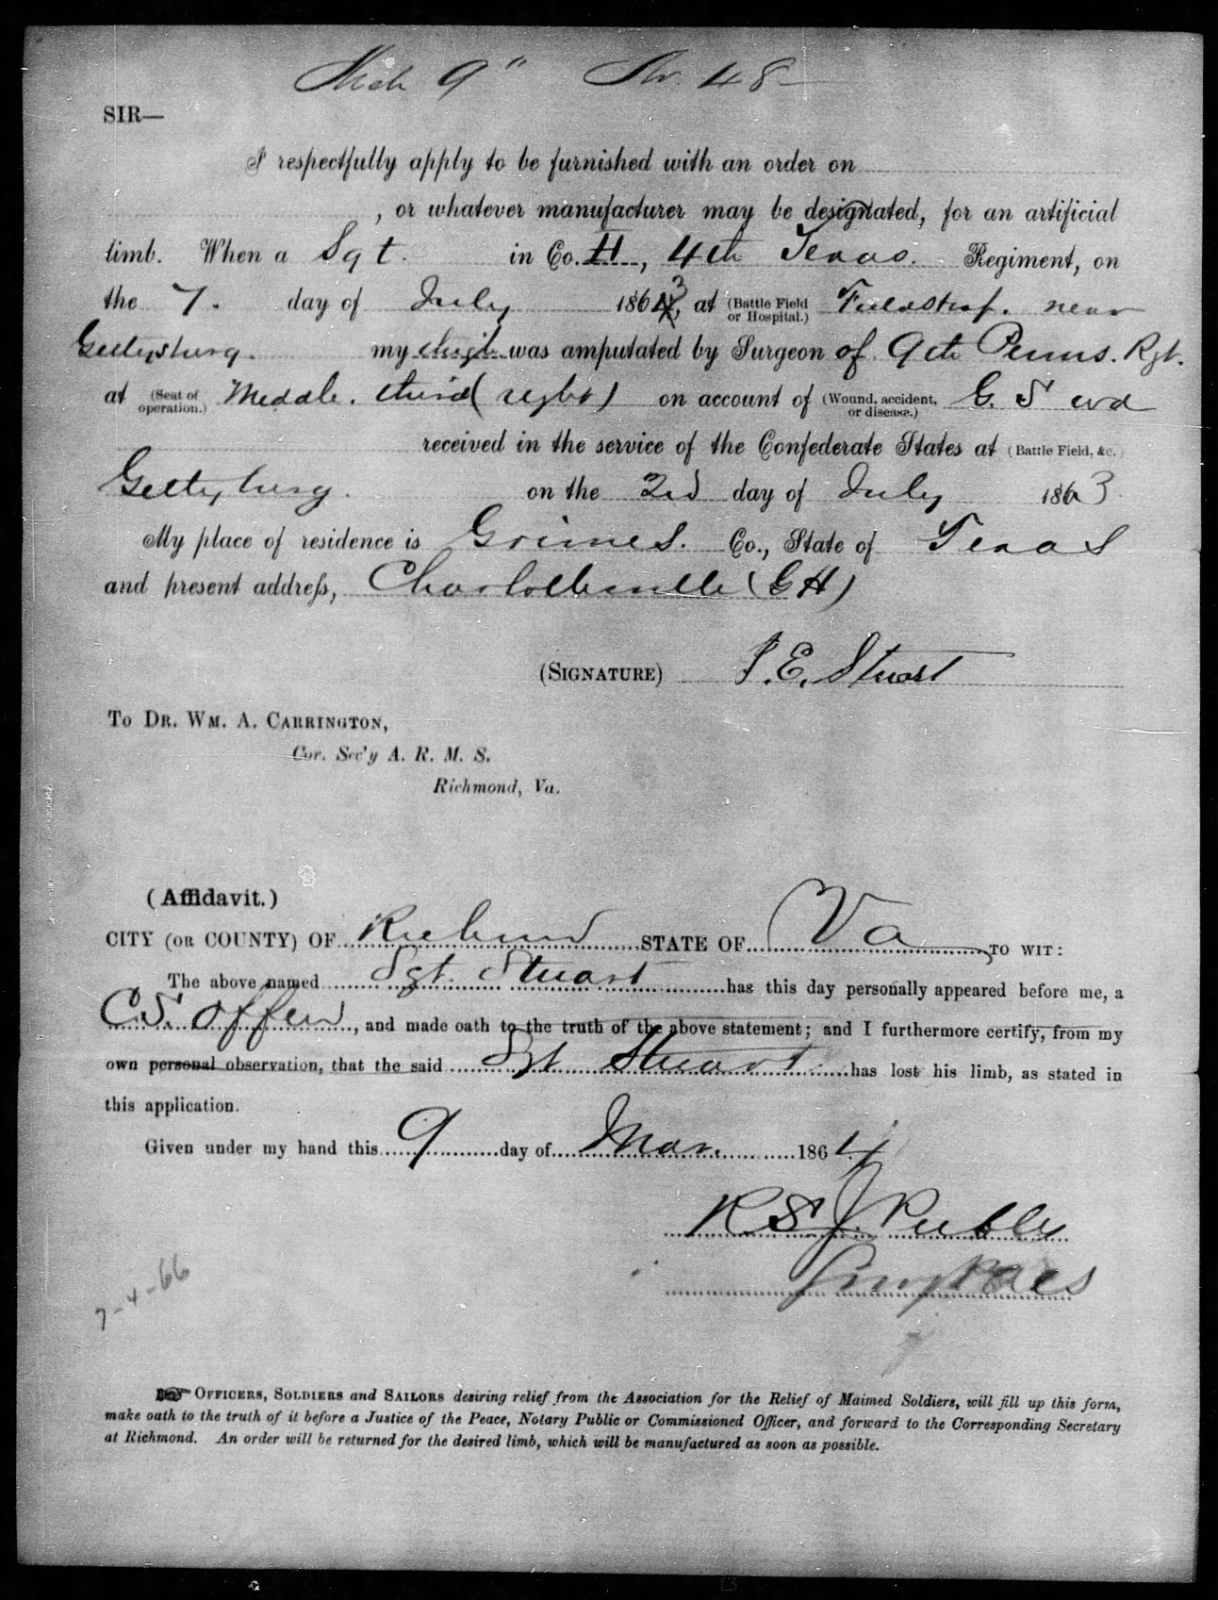 9" No. 48
SIR—
I respectfully apply to be furnished with an order on
, or whatever manufacturer may be designated, for an artificial
limb. When a Sgt. in Co. H, 4th Texas. Regiment, on
the 7. day of July 1863, at (Battle Field or Hospital.) near
Gettysburg. my thigh was amputated by Surgeon of 9th Penns. Rgt.
at (Seat of operation.) Middle. third (right) on account of (Wound, accident, or disease.) G. S wd
received in the service of the Confederate States at (Battle Field, &c.)
Gettysburg. on the 2nd day of July 1863
My place of residence is Grimes. Co., State of Texas
and present address, Charlottesville (G H)
(SIGNATURE) S. E. Stuart
TO DR. WM. A. CARRINGTON,
Cor. Sec'y A. R. M. S.
Richmond, Va.
(Affidavit.)
CITY (OR COUNTY) OF Richmond STATE OF Va TO WIT:
The above named Sgt. Stuart has this day personally appeared before me, a
C.S. Officer, and made oath to the truth of the above statement; and I furthermore certify, from my
own personal observation, that the said Sgt Stuart has lost his limb, as stated in
this application.
Given under my hand this 9 day of Mar. 1864
R S J. Peebles
Surg PACS
7-4-66
OFFICERS, SOLDIERS and SAILORS desiring relief from the Association for the Relief of Maimed Soldiers, will fill up this form,
make oath to the truth of it before a Justice of the Peace, Notary Public or Commissioned Officer, and forward to the Corresponding Secretary
at Richmond. An order will be returned for the desired limb, which will be manufactured as soon as possible.